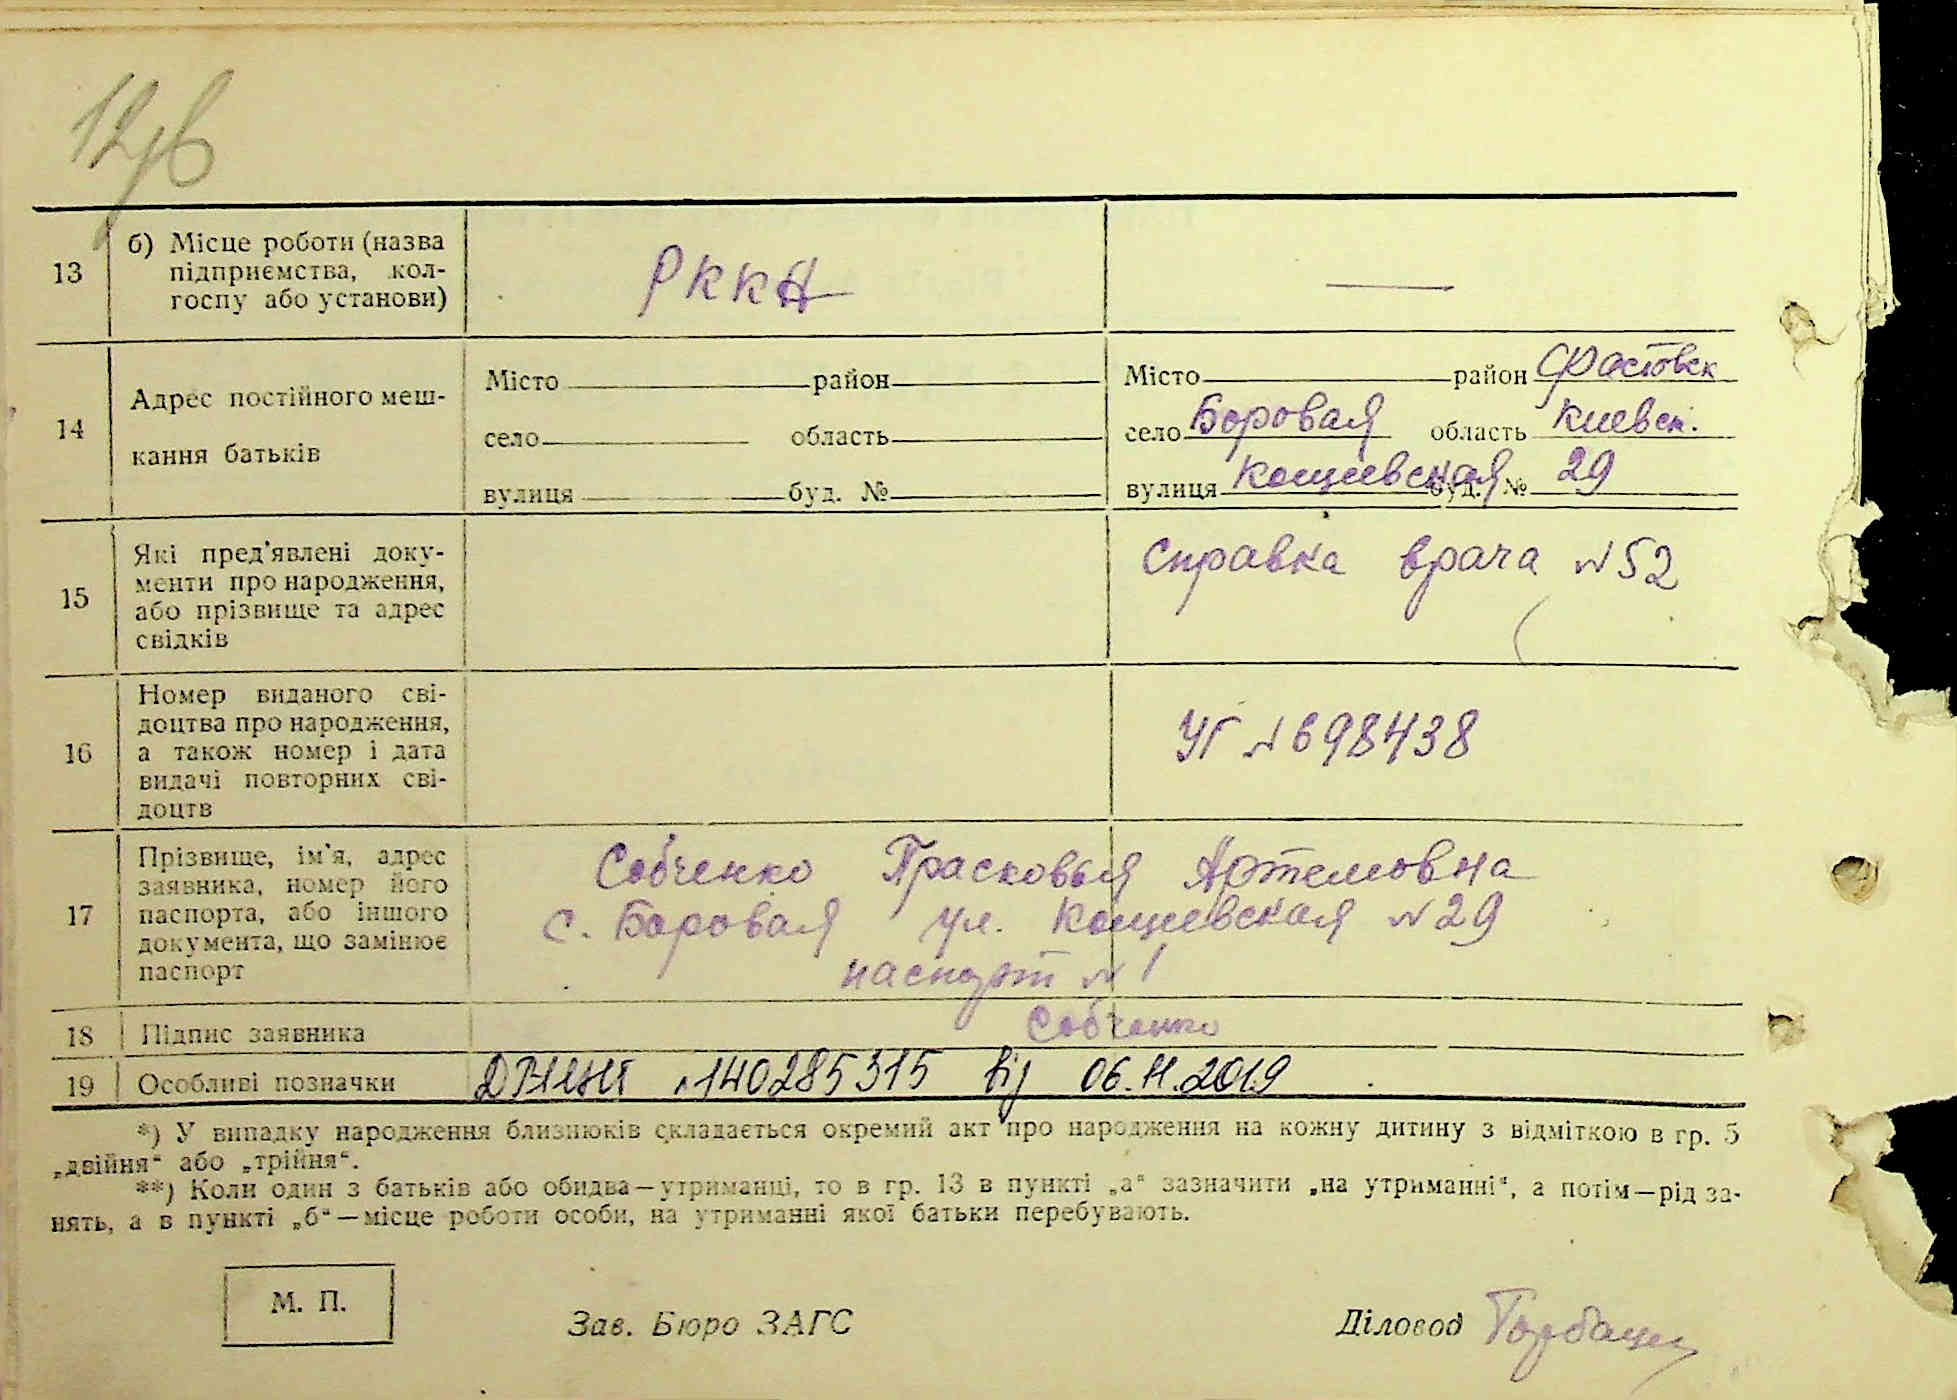 13
б) Місце роботи (назва
підприємства, кол-
госпу або установи)
РККА
14
Адрес постійного меш-
кання батьків
Місто район
село область
вулиця буд. №
Місто район Фастовск
село Боровая область Киевск.
вулиця Кощиевская буд. № 29
15
Які пред'явлені доку-
менти про народження,
або прізвище та адрес
свідків
Справка врача №52
16
Номер виданого сві-
доцтва про народження,
а також номер і дата
видачі повторних сві-
доцтв
УГ №698438
17
Прізвище, ім'я, адрес
заявника, номер його
паспорта, або іншого
документа, що замінює
паспорт
Собченко Прасковья Артемовна
с. Боровая ул. Кощиевская №29
паспорт №1
18 Підпис заявника Собченко
19 Особливі позначки 140285315 від 06.11.2019
*) У випадку народження близнюків складається окремий акт про народження на кожну дитину з відміткою в гр. 5
„двійня“ або „трійня“.
**) Коли один з батьків або обидва—утриманці, то в гр. 13 в пункті „а“ зазначити „на утриманні“, а потім—рід за-
нять, а в пункті „б“—місце роботи особи, на утриманні якої батьки перебувають.
М. П.
Зав. Бюро ЗАГС
Діловод